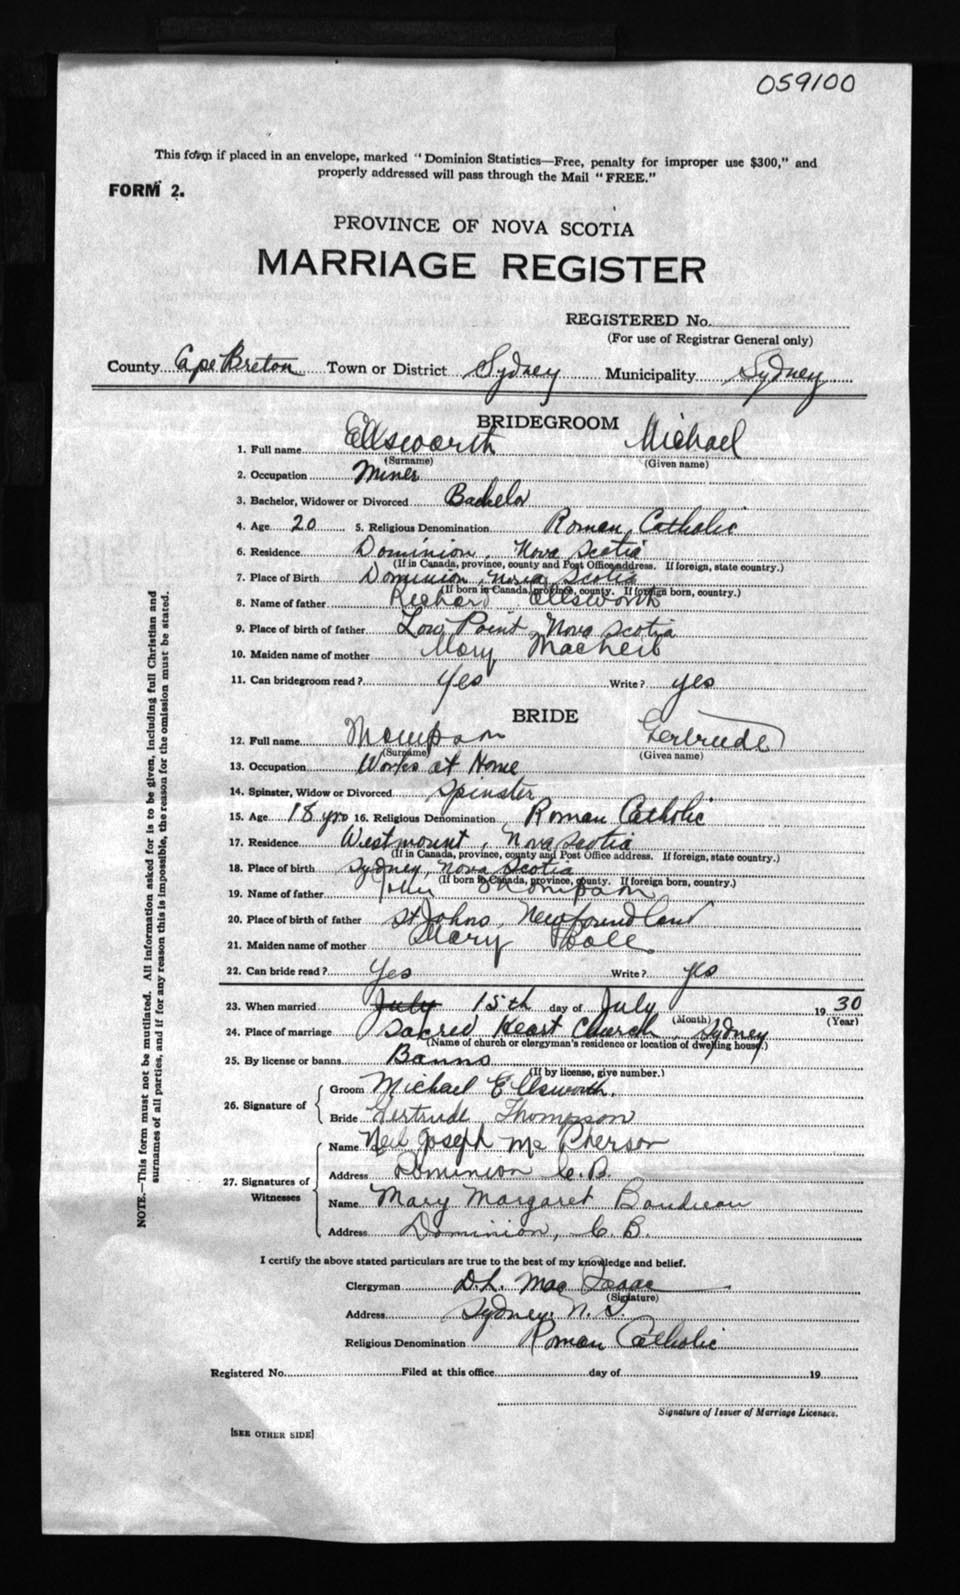 059100
This form if placed in an envelope, marked "Dominion Statistics—Free, penalty for improper use $300," and
properly addressed will pass through the Mail "FREE."
FORM 2.
PROVINCE OF NOVA SCOTIA
MARRIAGE REGISTER
REGISTERED No.
(For use of Registrar General only)
County Cape Breton Town or District Sydney Municipality Sydney
BRIDEGROOM
1. Full name Ellsworth Michael
(Surname) (Given name)
2. Occupation Miner
3. Bachelor, Widower or Divorced Bachelor
4. Age 20 5. Religious Denomination Roman Catholic
6. Residence Dominion, Nova Scotia
(If in Canada, province, county and Post Office address. If foreign, state country.)
7. Place of Birth Dominion, Nova Scotia
(If born in Canada, province, county. If foreign born, country.)
8. Name of father Richard Ellsworth
9. Place of birth of father Low Point, Nova Scotia
10. Maiden name of mother Mary MacNeil
11. Can bridegroom read? Yes Write? yes
BRIDE
12. Full name Gertrude
(Surname) (Given name)
13. Occupation Works at Home
14. Spinster, Widow or Divorced Spinster
15. Age 18 yrs 16. Religious Denomination Roman Catholic
17. Residence Westmount, Nova Scotia
(If in Canada, province, county and Post Office address. If foreign, state country.)
18. Place of birth Sydney, Nova Scotia
(If born in Canada, province, county. If foreign born, country.)
19. Name of father
20. Place of birth of father St. Johns, Newfoundland
21. Maiden name of mother Mary
22. Can bride read? Yes Write? yes
23. When married July 15th day of July 1930
(Month) (Year)
24. Place of marriage Sacred Heart Church, Sydney
(Name of church or clergyman's residence or location of dwelling house.)
25. By license or banns Banns
(If by license, give number.)
26. Signature of
Groom Michael Ellsworth.
Bride Gertrude Thompson
27. Signatures of Witnesses
Name Neil Joseph Mc Pherson
Address Dominion C.B.
Name Mary Margaret Boudreau
Address Dominion, C.B.
I certify the above stated particulars are true to the best of my knowledge and belief.
Clergyman D.L. Mac Isaac
(Signature)
Address Sydney, N.S.
Religious Denomination Roman Catholic
Registered No. Filed at this office day of 19
Signature of Issuer of Marriage Licenses.
[SEE OTHER SIDE]
NOTE.—This form must not be mutilated. All information asked for is to be given, including full Christian and
surnames of all parties, and if for any reason this is impossible, the reason for the omission must be stated.